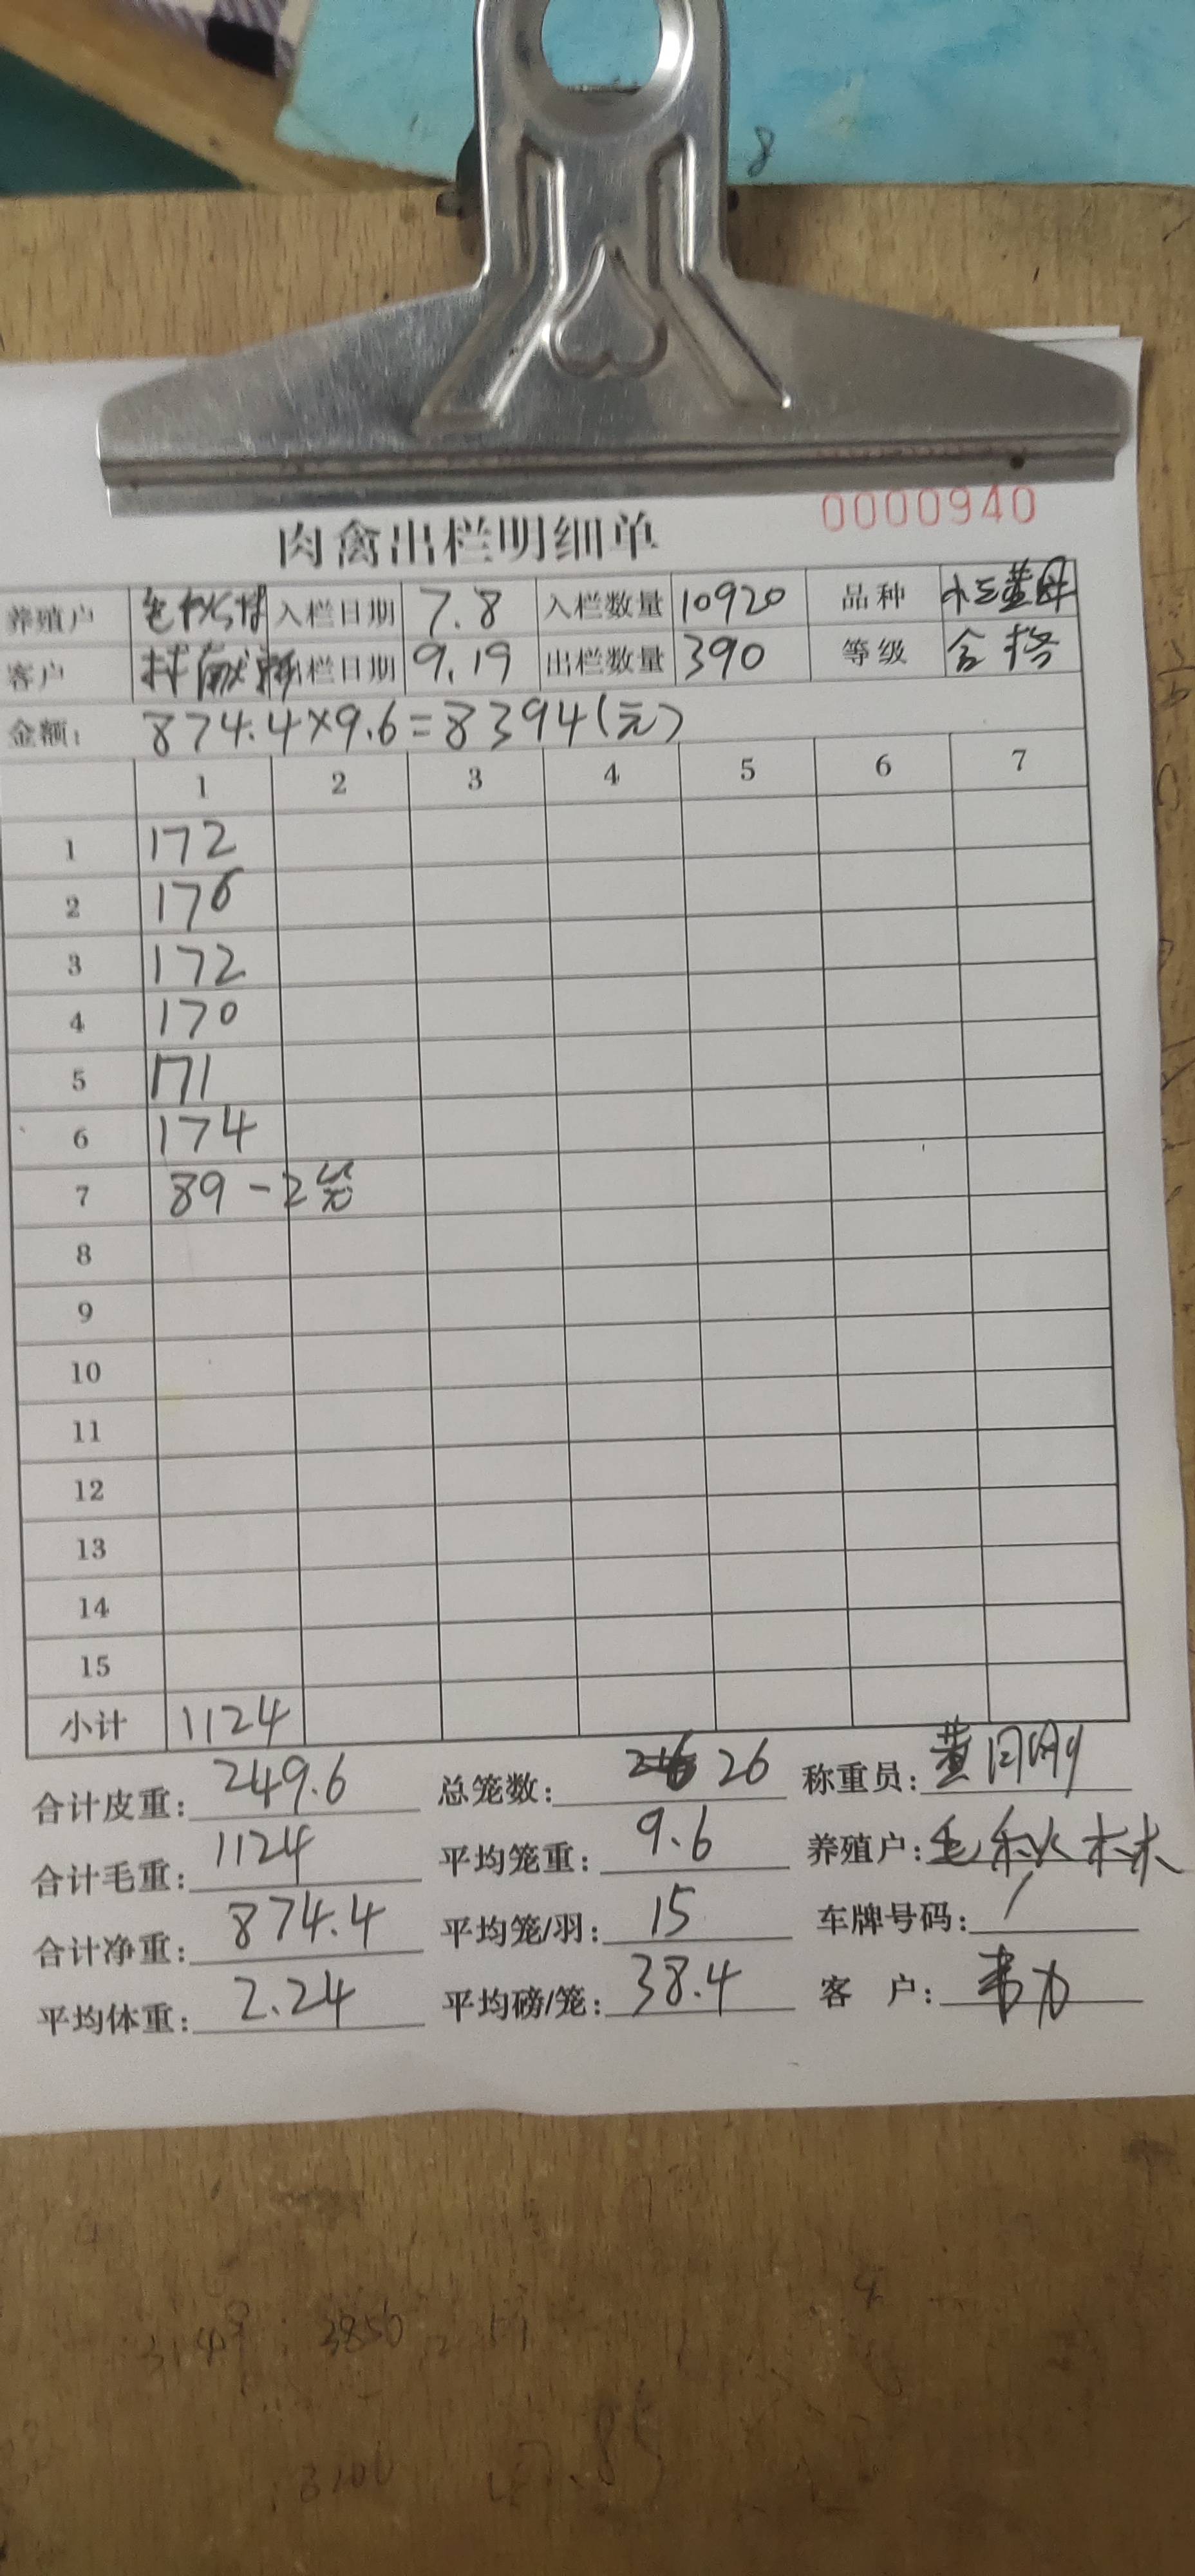 8
0000940
肉禽出栏明细单
养殖户 毛秋林 入栏日期 7.8 入栏数量 10920 品种 小三黄母
客户 出栏日期 9.19 出栏数量 390 等级 合格
金额: 874.4×9.6=8394(元)
1 2 3 4 5 6 7
1 172
2 176
3 172
4 170
5 171
6 174
7 89-2笼
8
9
10
11
12
13
14
15
小计 1124
合计皮重: 249.6 总笼数: 26 称重员: 黄月刚
合计毛重: 1124 平均笼重: 9.6 养殖户: 毛秋林
合计净重: 874.4 平均笼/羽: 15 车牌号码: /
平均体重: 2.24 平均磅/笼: 38.4 客 户: 韦力
3850
3100